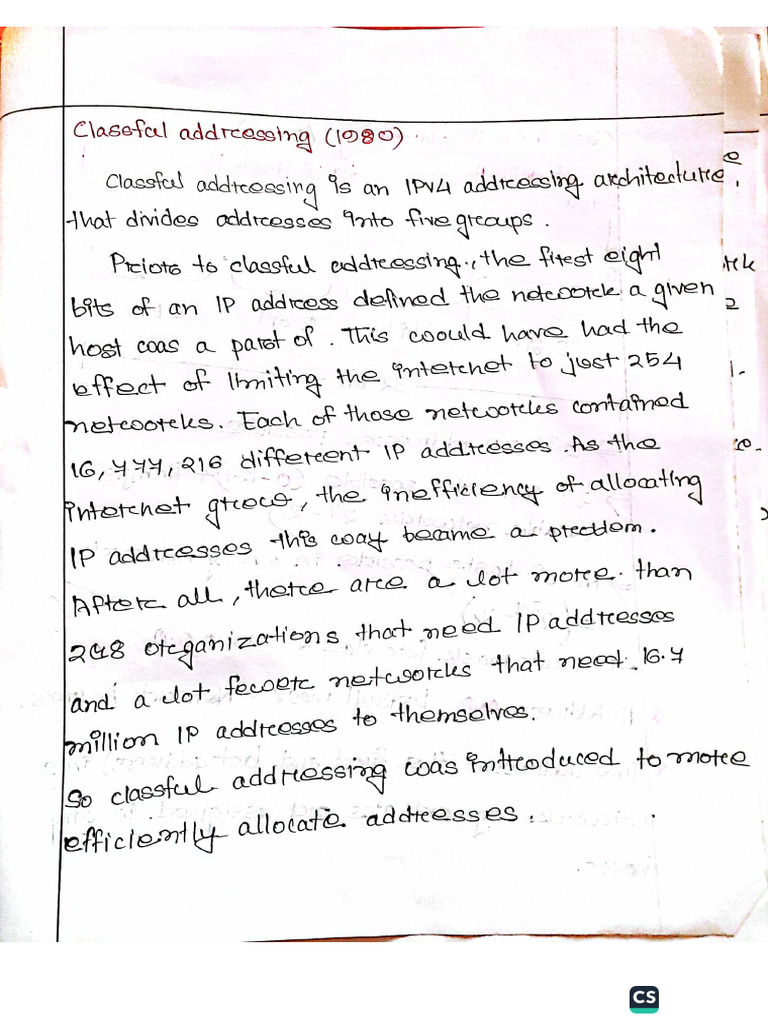 Classful addressing (1980)
Classful addressing is an IPv4 addressing architecture
that divides addresses into five groups.
Prioro to classful addressing, the first eight
bits of an IP address defined the network a given
host was a part of. This would have had the
effect of limiting the internet to just 254
networks. Each of those networks contained
16,777,216 different IP addresses. As the
internet grew, the inefficiency of allocating
IP addresses this way became a problem.
After all, there are a lot more than
248 organizations that need IP addresses
and a lot fewer networks that need 16.7
million IP addresses to themselves.
So classful addressing was introduced to more
efficiently allocate addresses.
CS